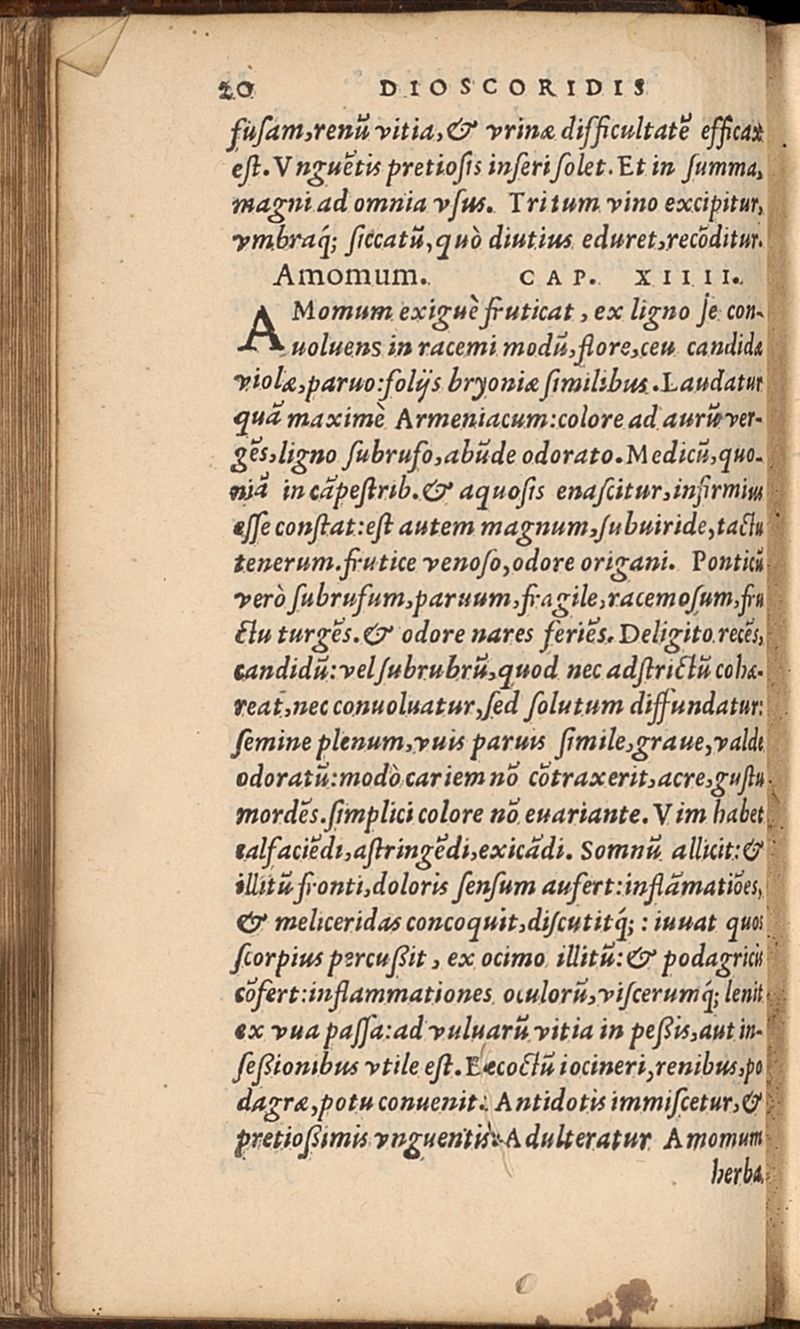 20 DIOSCORIDIS
fusam, renũ vitia, & vrinæ difficultatẽ efficax
est. Vnguẽtis pretiosis inseri solet. Et in summa,
magni ad omnia vsus. Tritum vino excipitur,
vmbraq́; siccatũ, quò diutius eduret, recõditur.
Amomum. CAP. XIIII.
AMomum exiguè fruticat, ex ligno se con-
uoluens in racemi modũ, flore, ceu candidæ
violæ, paruo: folijs bryoniæ similibus. Laudatur
quã maximè Armeniacum: colore ad aurũ ver-
gẽs, ligno subrufo, abũde odorato. Medicũ, quo-
niã in cãpestrib. & aquosis enascitur, infirmius
esse constat: est autem magnum, subuiride, tactu
tenerum. frutice venoso, odore origani. Ponticũ
verò subrufum, paruum, fragile, racemosum, fru
ctu turgẽs. & odore nares feriẽs. Deligito recẽs,
candidũ: vel subrubrũ, quod nec adstrictũ cohæ-
reat, nec conuoluatur, sed solutum diffundatur:
semine plenum, vuis paruis simile, graue, valde
odoratũ: modò cariem nõ cõtraxerit, acre, gustu
mordẽs. simplici colore nõ euariante. Vim habet
calfaciẽdi, astringẽdi, exicãdi. Somnũ allicit: &
illitũ fronti, doloris sensum aufert: inflãmatiões,
& meliceridas concoquit, discutitq́;: iuuat quos
scorpius percußit, ex ocimo illitũ: & podagricis
cõfert: inflammationes oculorũ, viscerumq́; lenit
ex vua passa: ad vuluarũ vitia in peßis, aut in-
seßionibus vtile est. Decoctũ iocineri, renibus, po
dagræ, potu conuenit. Antidotis immiscetur, &
pretioßimis vnguentis. Adulteratur Amomum
herba,